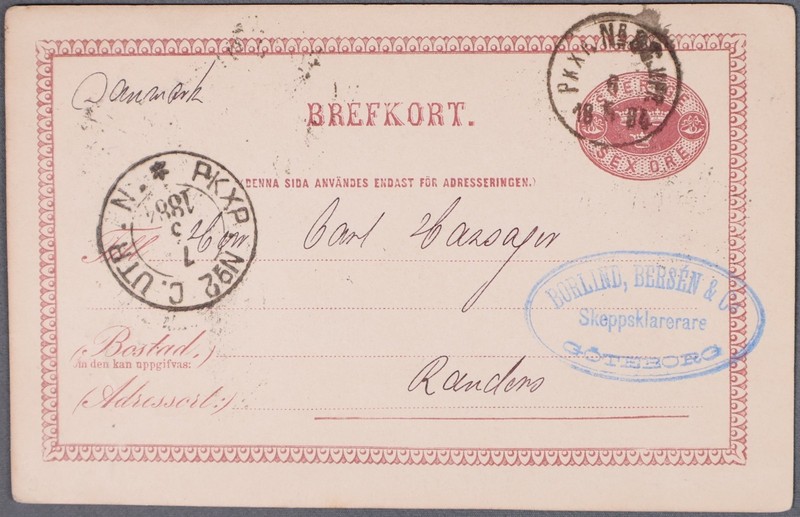 Danmark
BREFKORT.
(DENNA SIDA ANVÄNDES ENDAST FÖR ADRESSERINGEN.)
SEX ÖRE
PKXP. No
PKXP. No2. C. UTR. N.
7
3
1884
Till Herr Carl
BORLIND, BERSÉN & Co
Skeppsklarerare
GÖTEBORG
(Bostad.)
in den kan uppgifvas:
Randers
(Adressort:)